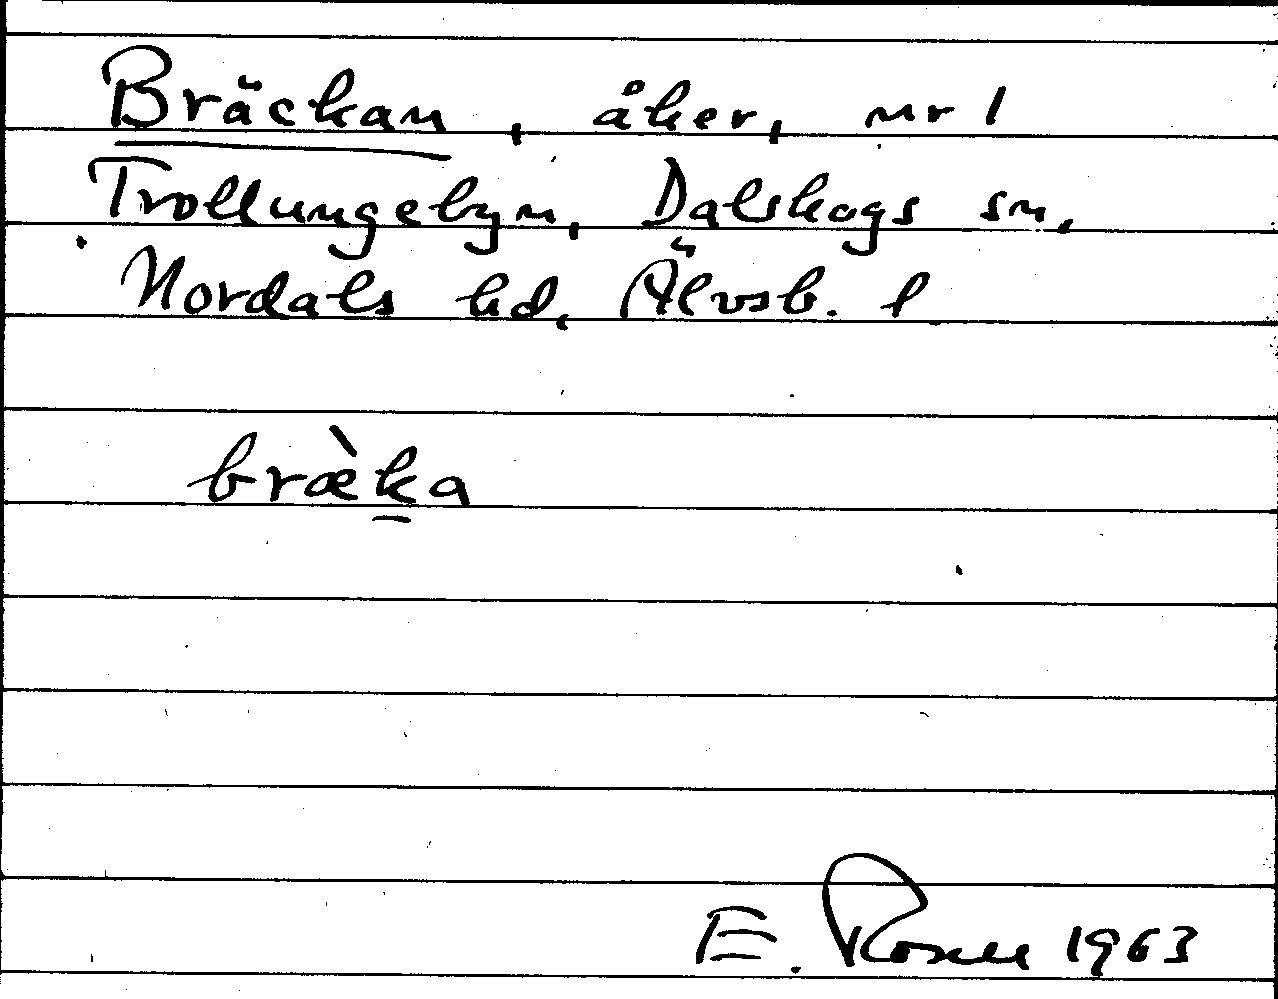 Bräckan, åker, nr 1
Trollungebyn, Dalskogs sn,
Nordals hd, Älvsb. l
bræ̀k̲a
E. Rosell 1963